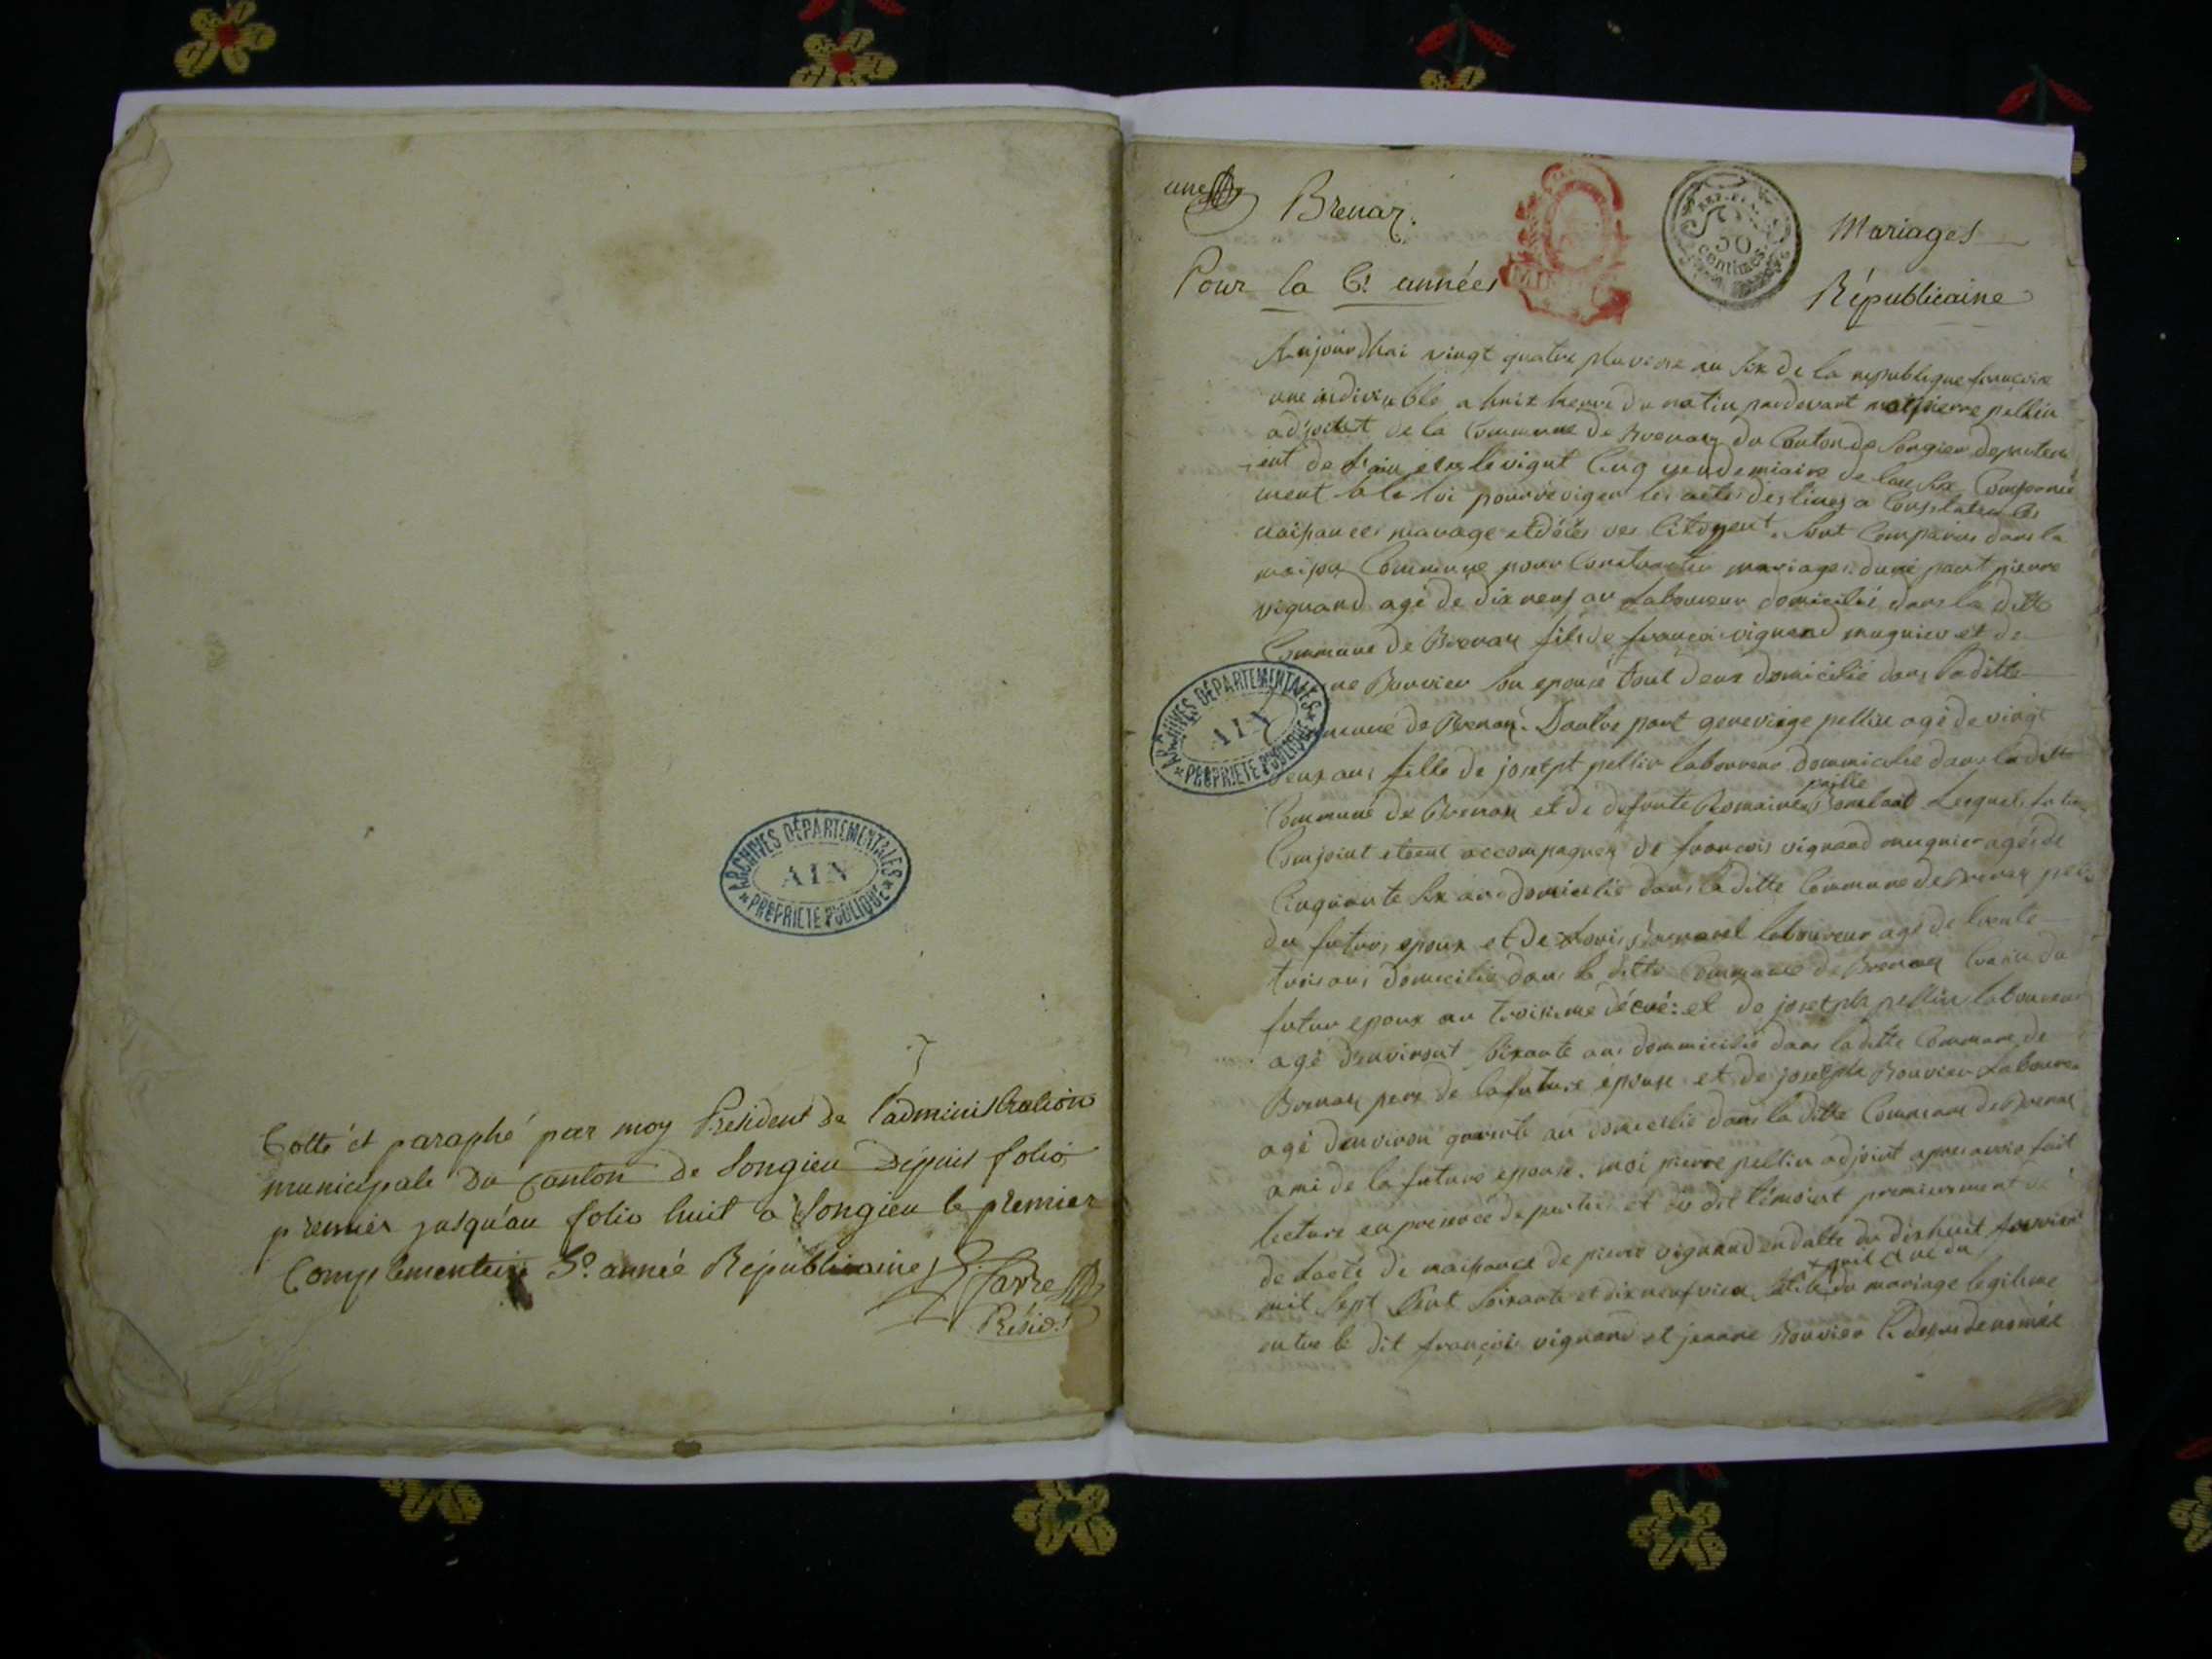 Cotté et paraphé par moy Président de l'administration
municipale du Canton de Songieu Depuis folio
premier jusqu'au folio huit à Songieu le premier
Complementeire 5e année Républicaine
Favre
Présid.t
ARCHIVES DÉPARTEMENTALES
AIN
PROPRIETE PUBLIQUE
une
Brenaz.
Mariages
Pour la 6e année
Républicaine
REP. FRA.
50
centimes.
Aujourdhui vingt quatre pluviose an six de la republique francoise
une indivisible a huit heure du matin pardevant moi pierre pellin
adjoint de la Commune de Brenaz du Canton de Songieu departem
ent de l'ain elu le vignt Cinq vendemiaire de lan six Conformé
ment a la loi pour rediger les actes destines a Constater les
naissances mariage et décès des Citoyent. Sont Comparus dans la
maison Commune pour Contracter mariages d'une part pierre
vignand agé de dix neuf an laboureur domicilié dans la ditte
Commune de Brenaz fils de francois vignand mugnier et de
ne Bouvier son epouse tout deux domicilié dans la ditte
mune de Brenaz. Dautre part genevieve pellin agé de vingt
deux ans fille de josetpt pellin laboureur dommicilié dans la ditte
Commune de Brenaz et de defunte Romaine
Conjoint etoient accompagnez de francois vignand mugnier agés de
Cinquante six ans domicilié dans la ditte Commune de Brenaz pere
du futur epoux et de Louis laboureur agé de trente
trois ans domicilié dans la ditte Commune de Brenaz Cousin du
futur epoux au troisieme degré: et de josetph pellin laboureur
agé d'environt soixante ans dommicilié dans la ditte Commune de
Brenaz pere de la future épouse et de josetph Bouvier Laboureur
agé denviron quarente an domicilié dans la ditte Commune de Brenaz
ami de la future epouse. moi pierre pellin adjoint apres avoir fait
lecture en presence de parties et des dit témoint premierement de
de lacte de naissance de pierre vignand en datte du dixhuit fevrier
mil sept Cent soixante et dix neuf vieux stile quil est ne du mariage legitime
entre le dit françois vignand et jeanne Bouvier Ci dessus denomée
ARCHIVES DÉPARTEMENTALES
AIN
PROPRIETE PUBLIQUE